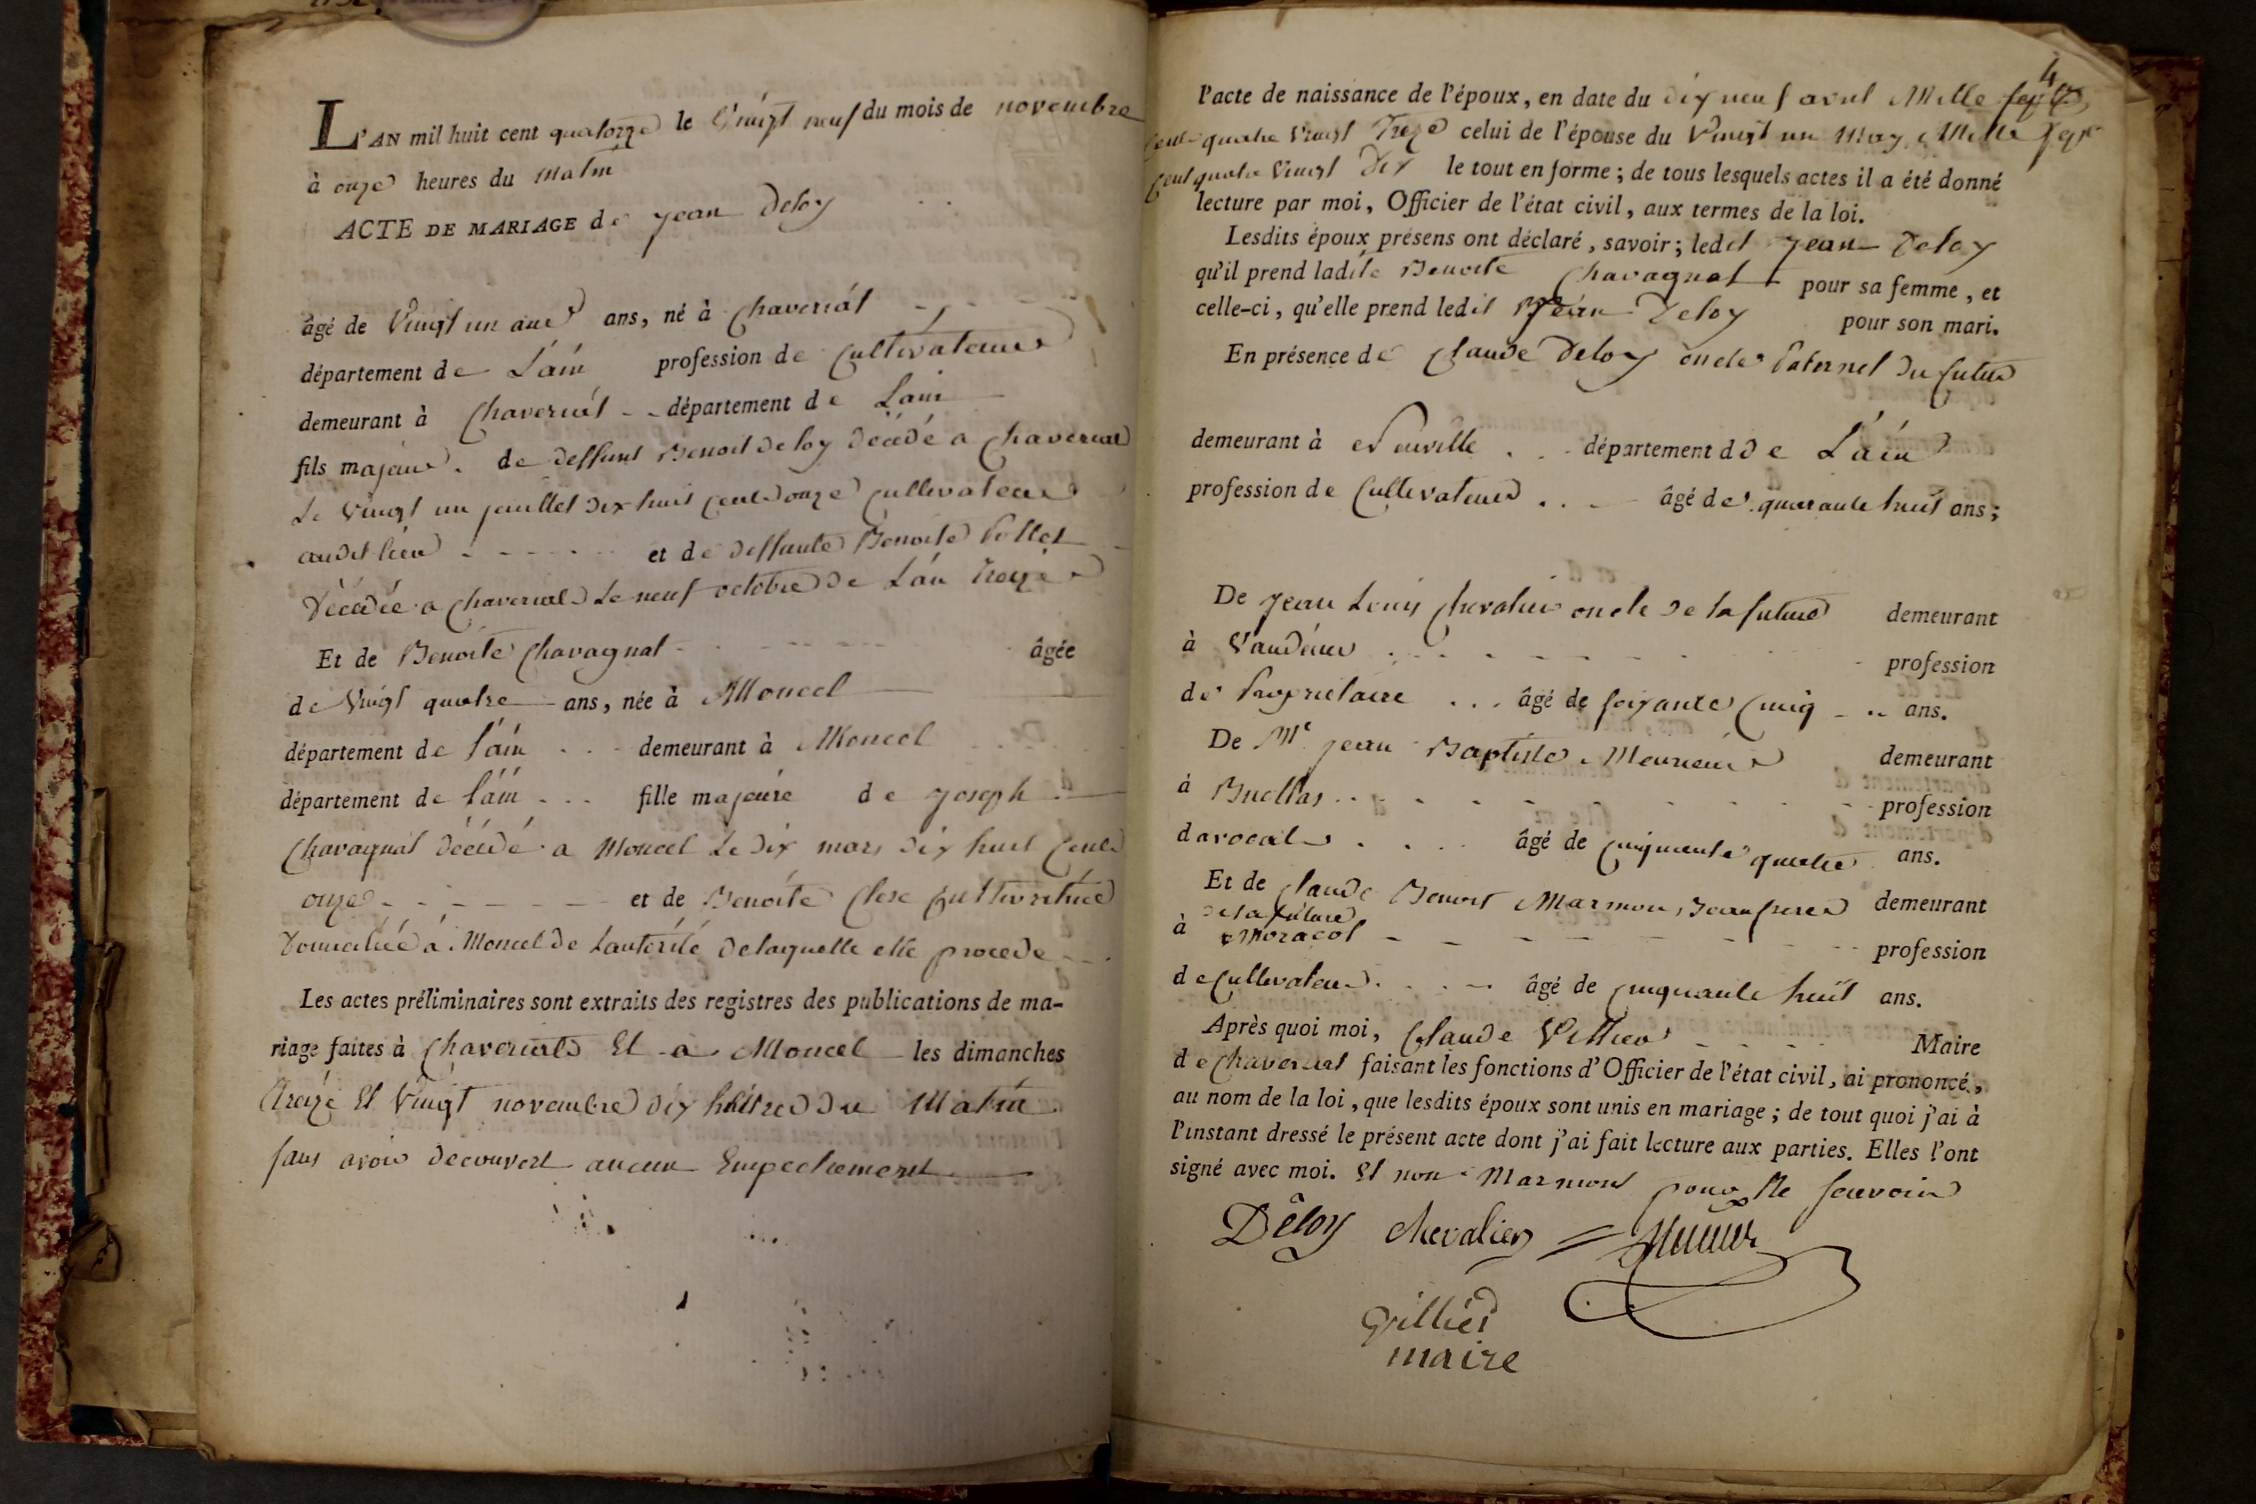 L'AN mil huit cent quatorze le Vingt neuf du mois de novembre
à onze heures du matin
ACTE DE MARIAGE de jean Deloy
âgé de Vingt un ans ans, né à Chaveriat
département de L'ain profession de Cultivateur
demeurant à Chaveriat département de Lain
fils majeur de deffunt Benoit Deloy décédé a Chaveriat
Le Vingt un juillet dix huit cent onze Cultivateur
audit lieu et de deffunte Benoite Pollet
Décédée a Chaveriat Le neuf octobre de L'an treize
Et de Benoite Chavagnat âgée
de Vingt quatre ans, née à Moncel
département de l'ain demeurant à Moncel
département de l'ain fille majeure de joseph
Chavagnat décédé a Moncel Le dix mars dix huit Cent
onze et de Benoite Clere Cultivatrice
Domiciliée à Moncel de Lautorité de laquelle elle procede
Les actes préliminaires sont extraits des registres des publications de ma-
riage faites à Chaveriat Et a Moncel les dimanches
treize Et Vingt novembre dix heures du Matin
sans avoir decouvert aucun Empechement
4
l'acte de naissance de l'époux, en date du dix neuf avril Mille sept
Cent quatre Vingt Treize celui de l'épouse du Vingt un May Mille sept
Cent quatre Vingt Dix le tout en forme ; de tous lesquels actes il a été donné
lecture par moi, Officier de l'état civil, aux termes de la loi.
Lesdits époux présens ont déclaré, savoir ; ledit jean Deloy
qu'il prend ladite Benoite Chavagnat pour sa femme, et
celle-ci, qu'elle prend ledit Jean Deloy pour son mari.
En présence de Claude Deloy oncle Paternel du futur
demeurant à Neuville département d de L'ain
profession de Cultivateur âgé de quarante huit ans ;
De jean Louis Chevalier oncle de la future demeurant
à Vandeins profession
de Proprietaire âgé de soixante Cinq ans.
De Mr jean Baptiste Meunier demeurant
à Buellas profession
d'avocat âgé de Cinquante quatre ans.
Et de Claude Benoit Marmon, Beaufrere demeurant
de la future
à Moracol profession
de Cultivateur âgé de Cinquante huit ans.
Après quoi moi, Claude Villier Maire
de Chaveriat faisant les fonctions d'Officier de l'état civil, ai prononcé,
au nom de la loi, que lesdits époux sont unis en mariage ; de tout quoi j'ai à
l'instant dressé le présent acte dont j'ai fait lecture aux parties. Elles l'ont
signé avec moi. Et non Marmont pour ne sçavoir
Dêloy Chevalier
maire